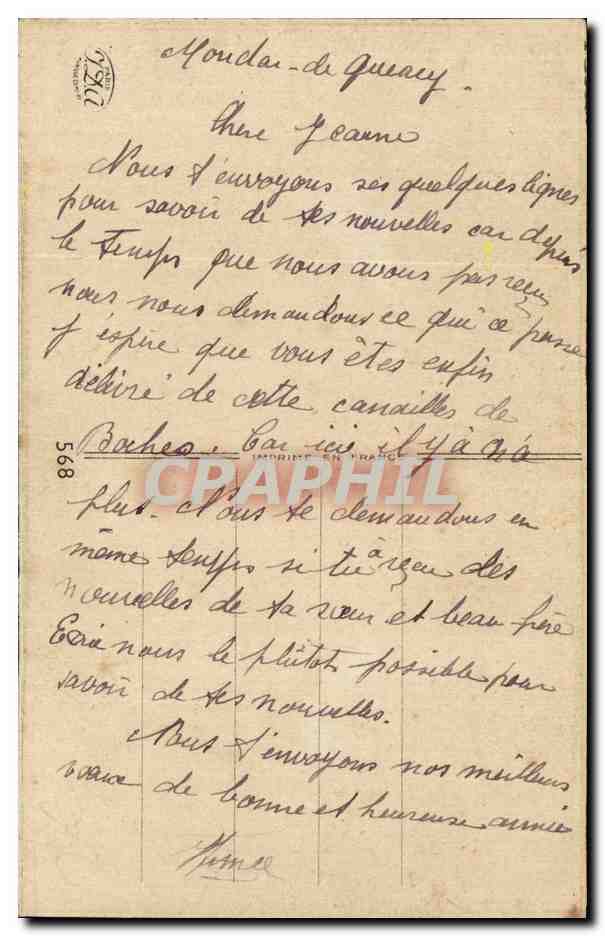 Moudar-de Quercy.
Chère Jeanne
Nous t'envoyons ses quelques lignes
pour savoir de tes nouvelles car depuis
le temps que nous avons pas reçu
nous nous demandons ce qui ce passe
j'espère que vous êtes enfin
délivré de cette canailles de
Boches. Car ici il y à n'a
568
IMPRIMÉ EN FRANCE
CPARPHIL
plus. Nous te demandons en
même temps si tu à reçu des
nouvelles de ta sœur et beau frère
Ecrie nous le plûtot possible pour
savoir de tes nouvelles.
Nous t'envoyons nos meilleurs
vœux de bonne et heureuse année